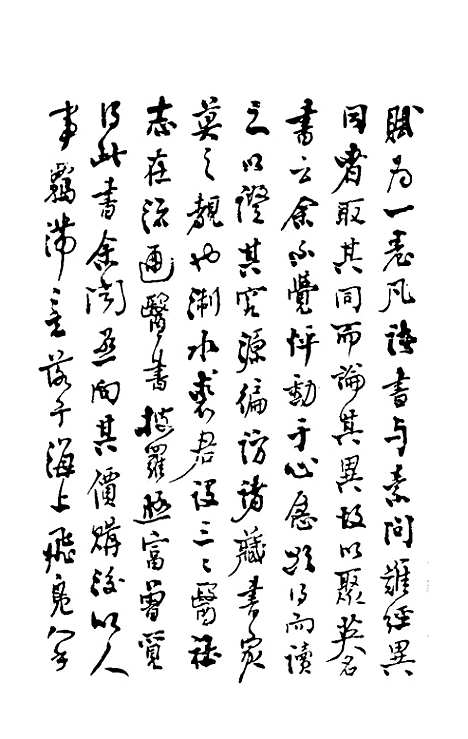 賦為一卷凡諸書與素問難經異
同者取其同而論其異故以聚英名
書云余不覺怦動于心急欲得而讀
之以證其究源徧訪諸藏書家
莫之覯也浙水裘君設三三醫社
志在流通醫書搜羅極富曾覓
得此書余聞亟向其價購後以人
事羈滯竟落于海上飛鳧家